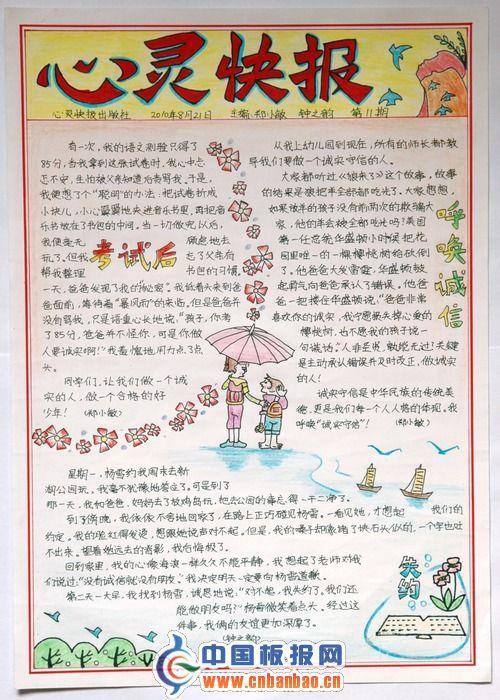 心灵快报
心灵快报出版社 2010年8月21日 主编:郑小敏 钟之韵 第11期
考试后
有一次,我的语文测验只得了
85分,当我拿到这张试卷时,我心中忐
忑不安,生怕被父亲知道后责骂我。于是,
我便想了个“聪明”的办法:把试卷折成
小块儿,小心翼翼地夹进音乐书里,再把音
乐书放在了书包的中间。当一切做完以后,
我便毫无 顾忌地去
玩了。但我 忘了父亲有
帮我整理 书包的习惯,
一天,爸爸发现了我的“秘密”。我低着头来到爸
爸面前,等待着“暴风雨”的来临,但是爸爸并
没有骂我,只是语重心长地说:“孩子,你考
了85分,爸爸并不怪你,可是你做
人要诚实啊!”我羞愧地用力点了点
头。
同学们,让我们做一个诚
实的人,做一个合格的好
少年!(郑小敏)
呼唤诚信
从我上幼儿园到现在,所有的师长都教
导我们要做一个诚实守信的人。
大家都听过《狼来了》这个故事,故事
的结果是狼把羊全部都吃光了。大家想想,
如果放羊的孩子没有前两次的欺骗大
家,他的羊会被全部吃光吗?美国
第一任总统华盛顿小时候把花
园里唯一的一棵樱桃树给砍倒
了。他爸爸大发雷霆,华盛顿鼓
起勇气向爸爸承认了错误。他爸
爸一把搂住华盛顿说:“爸爸非常
喜欢你的诚实,我宁愿损失掉心爱的
樱桃树,也不愿我的孩子说
一句谎话。”人非圣贤,孰能无过?关键
是主动承认错误并及时改正,做诚实
的人!
诚实守信是中华民族的传统美
德,更是我们每个人人格的体现。我
呼唤“诚实守信”!
(郑小敏)
失约
星期一,杨雪约我周末去新
湖公园玩,我毫不犹豫地答应了。可是到了
那一天,我和爸爸、妈妈去了放鸡岛玩,把去公园的事忘得一干二净了。
到了傍晚,我依依不舍地回家了,在路上正巧碰见杨雪。一看见她,才想起 我们的
约定。我的脸红得发烫,想跟她说声对不起。但是,我的嗓子却像堵了块石头似的,一个字也吐
不出来。望着她远去的背影,我后悔极了。
回到家里,我的心像海浪一样久久不能平静,我想起了老师对我
们说过:“没有诚信就没有朋友。”我决定明天一定要向杨雪道歉。
第二天一大早,我找到杨雪,诚恳地说:“对不起,我失约了。我们还
能做朋友吗?”杨雪微笑着点头。经过这
件事,我俩的友谊更加深厚了。
(钟之韵)
中国板报网
www.cnbanbao.cn